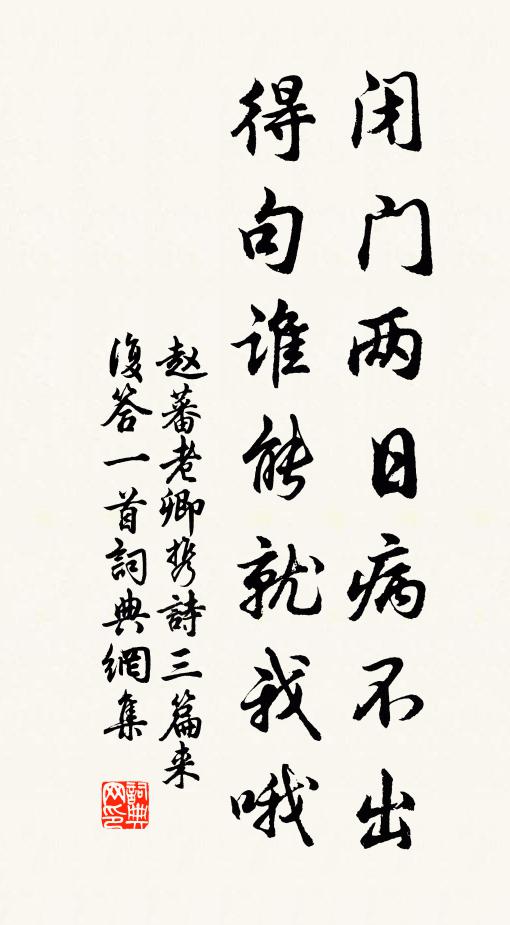 闭门两日病不出
得句谁能就我哦
赵蕃老卿携詩三篇来
復答一首詞典網集
詞典网印